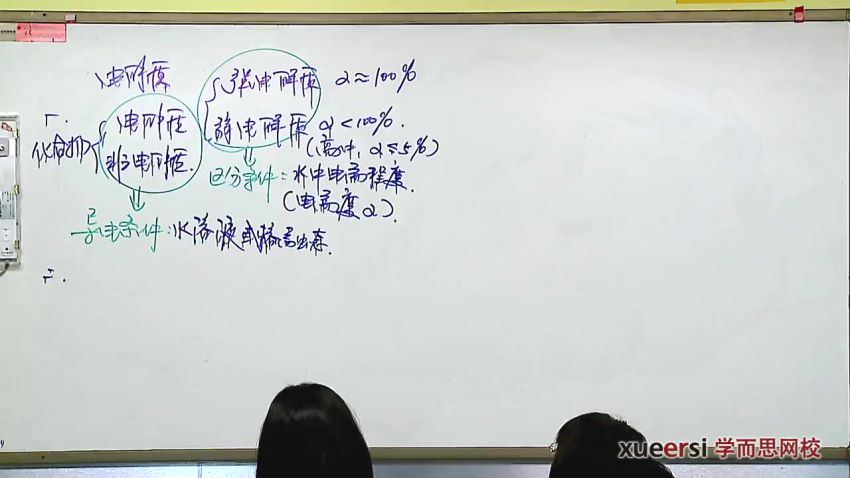 电解质
强电解质 α≈100%
一.
化合物 电解质 弱电解质 α<100%.
非电解质. (高中, α≤5%)
区分条件: 水中电离程度.
(电离度α).
导电条件: 水溶液或熔融状态.
二.
xueersi 学而思网校